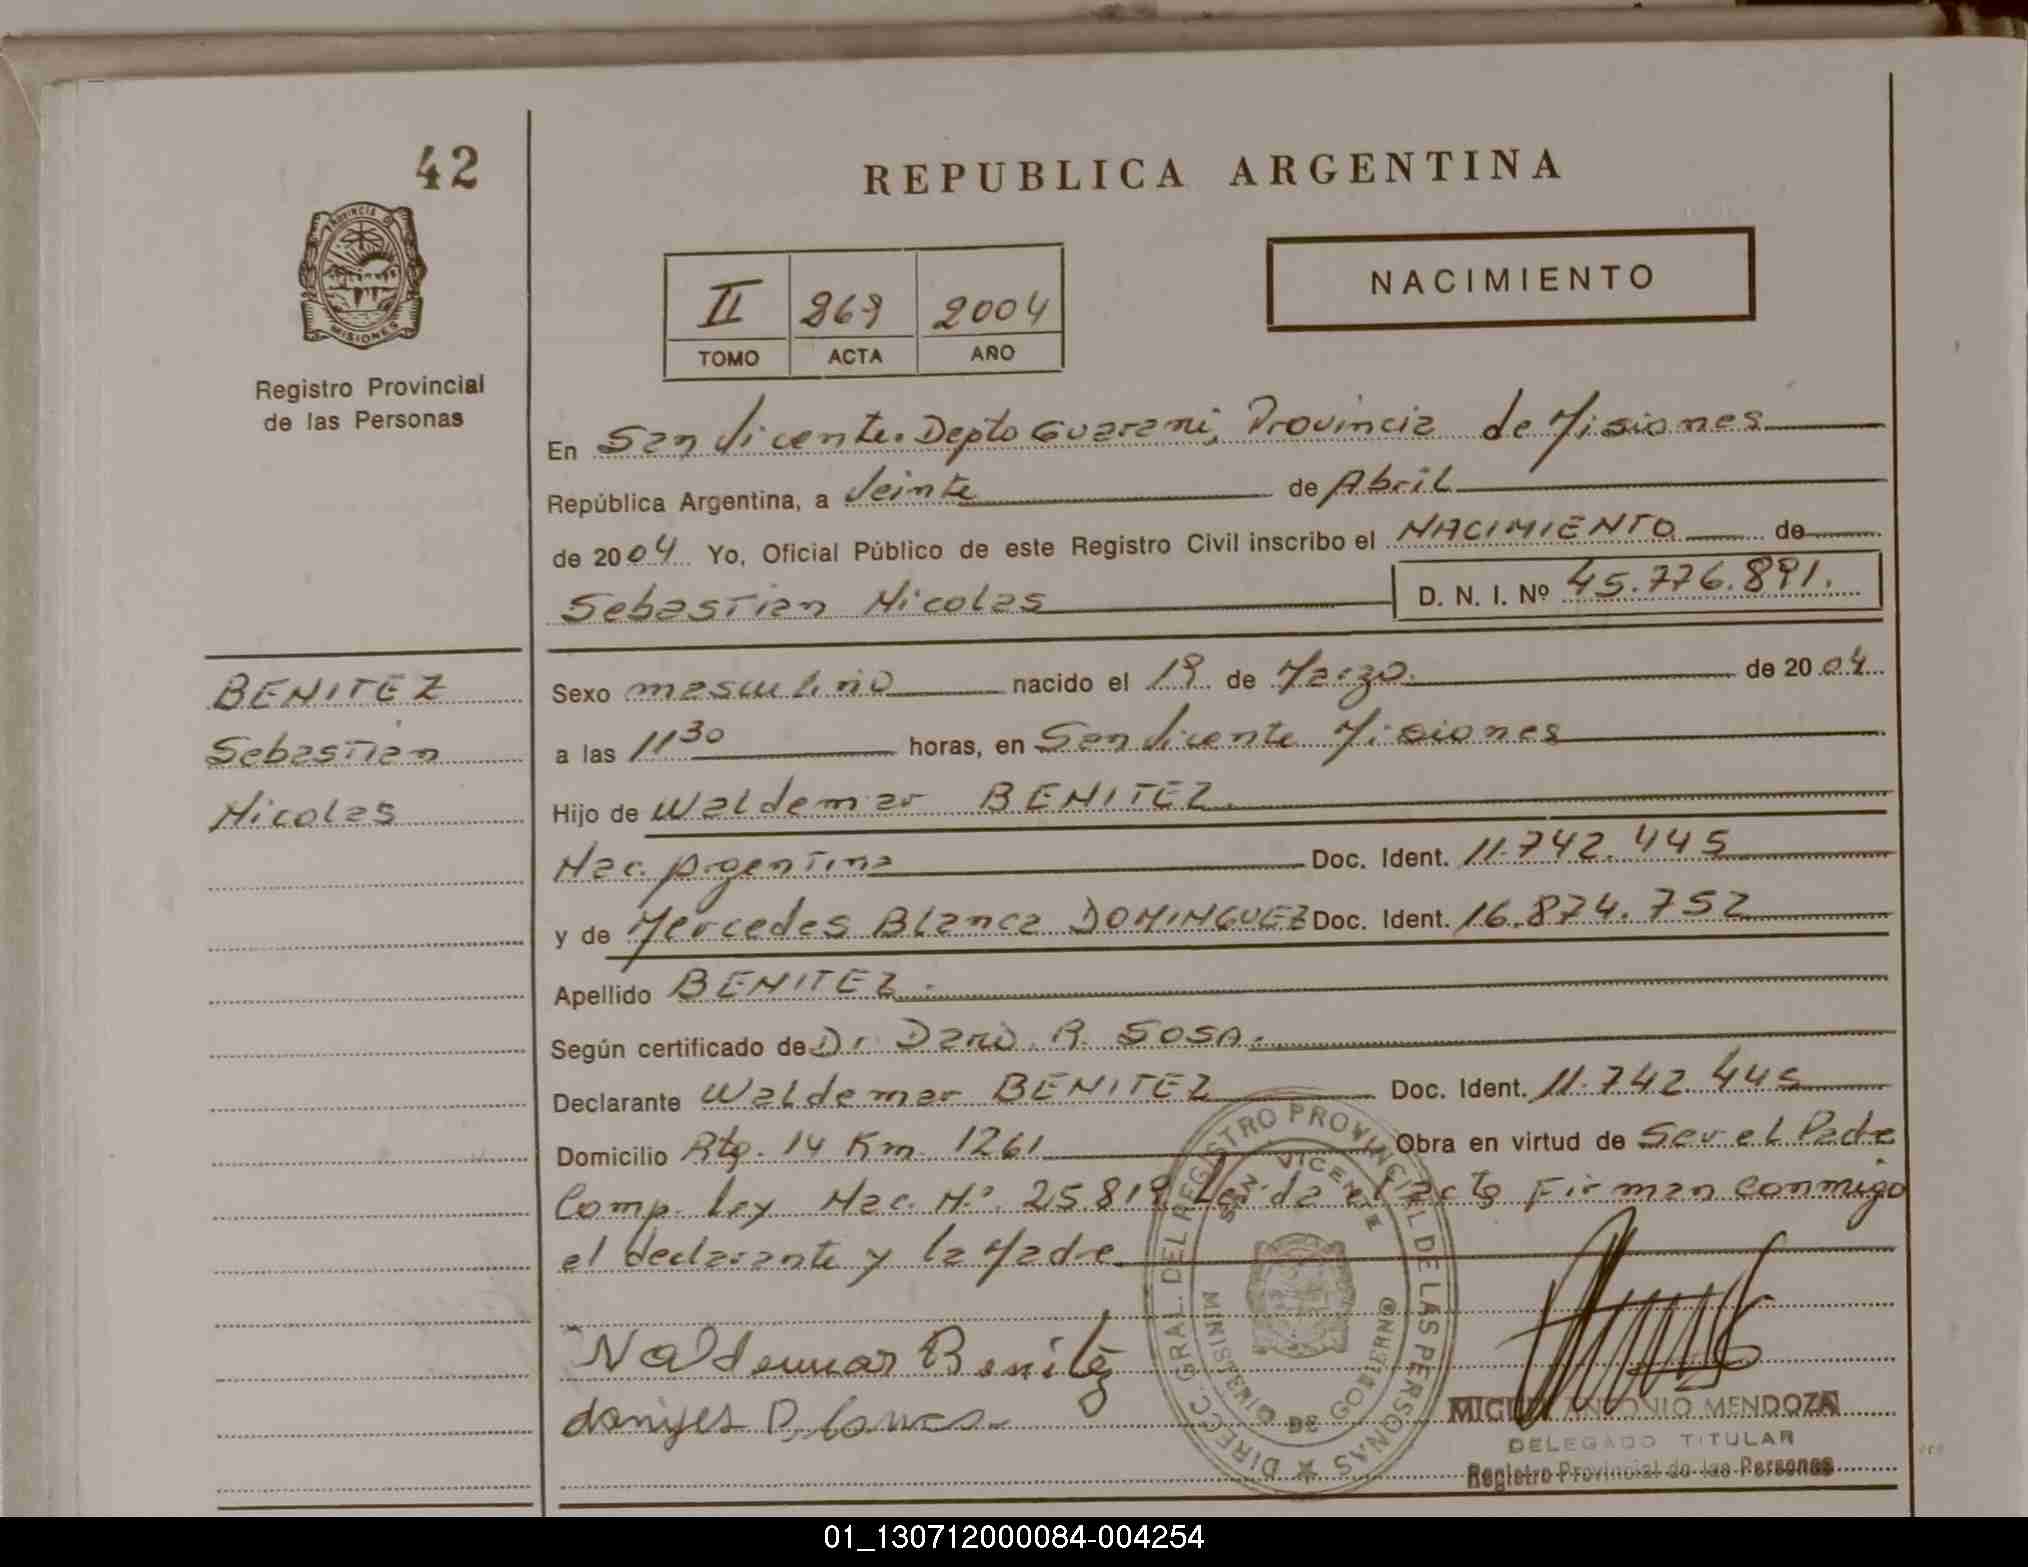 42
REPUBLICA ARGENTINA
PROVINCIA DE MISIONES
Registro Provincial
de las Personas
II 269 2004
TOMO ACTA AÑO
NACIMIENTO
En San Vicente. Depto Guarani, Provincia de Misiones
República Argentina, a Veinte de Abril
de 2004 Yo, Oficial Público de este Registro Civil inscribo el NACIMIENTO de
Sebastian Nicolas D. N. I. Nº 45.776.891.
BENITEZ
Sebastian
Nicolas
Sexo masculino nacido el 19 de Marzo. de 2004
a las 11 30 horas, en San Vicente Misiones
Hijo de Waldemar BENITEZ.
Nac. Argentina Doc. Ident. 11.742.445
y de Mercedes Blanca DOMINGUEZ Doc. Ident. 16.874.752
Apellido BENITEZ.
Según certificado de Dr Dario R. SOSA.
Declarante Waldemar BENITEZ Doc. Ident. 11.742.445
Domicilio Rta. 14 Km 1261 Obra en virtud de Ser el Padre
Comp. Ley Nac. Nº. 25.819 Leida el acta Firman conmigo
el declarante y la Madre
Waldemar Benitez
DIRECC. GRAL. DEL REGISTRO PROVINCIAL DE LAS PERSONAS
SAN VICENTE
MINISTERIO DE GOBIERNO
MIGUEL ANTONIO MENDOZA
DELEGADO TITULAR
Registro Provincial de las Personas
01_130712000084-004254